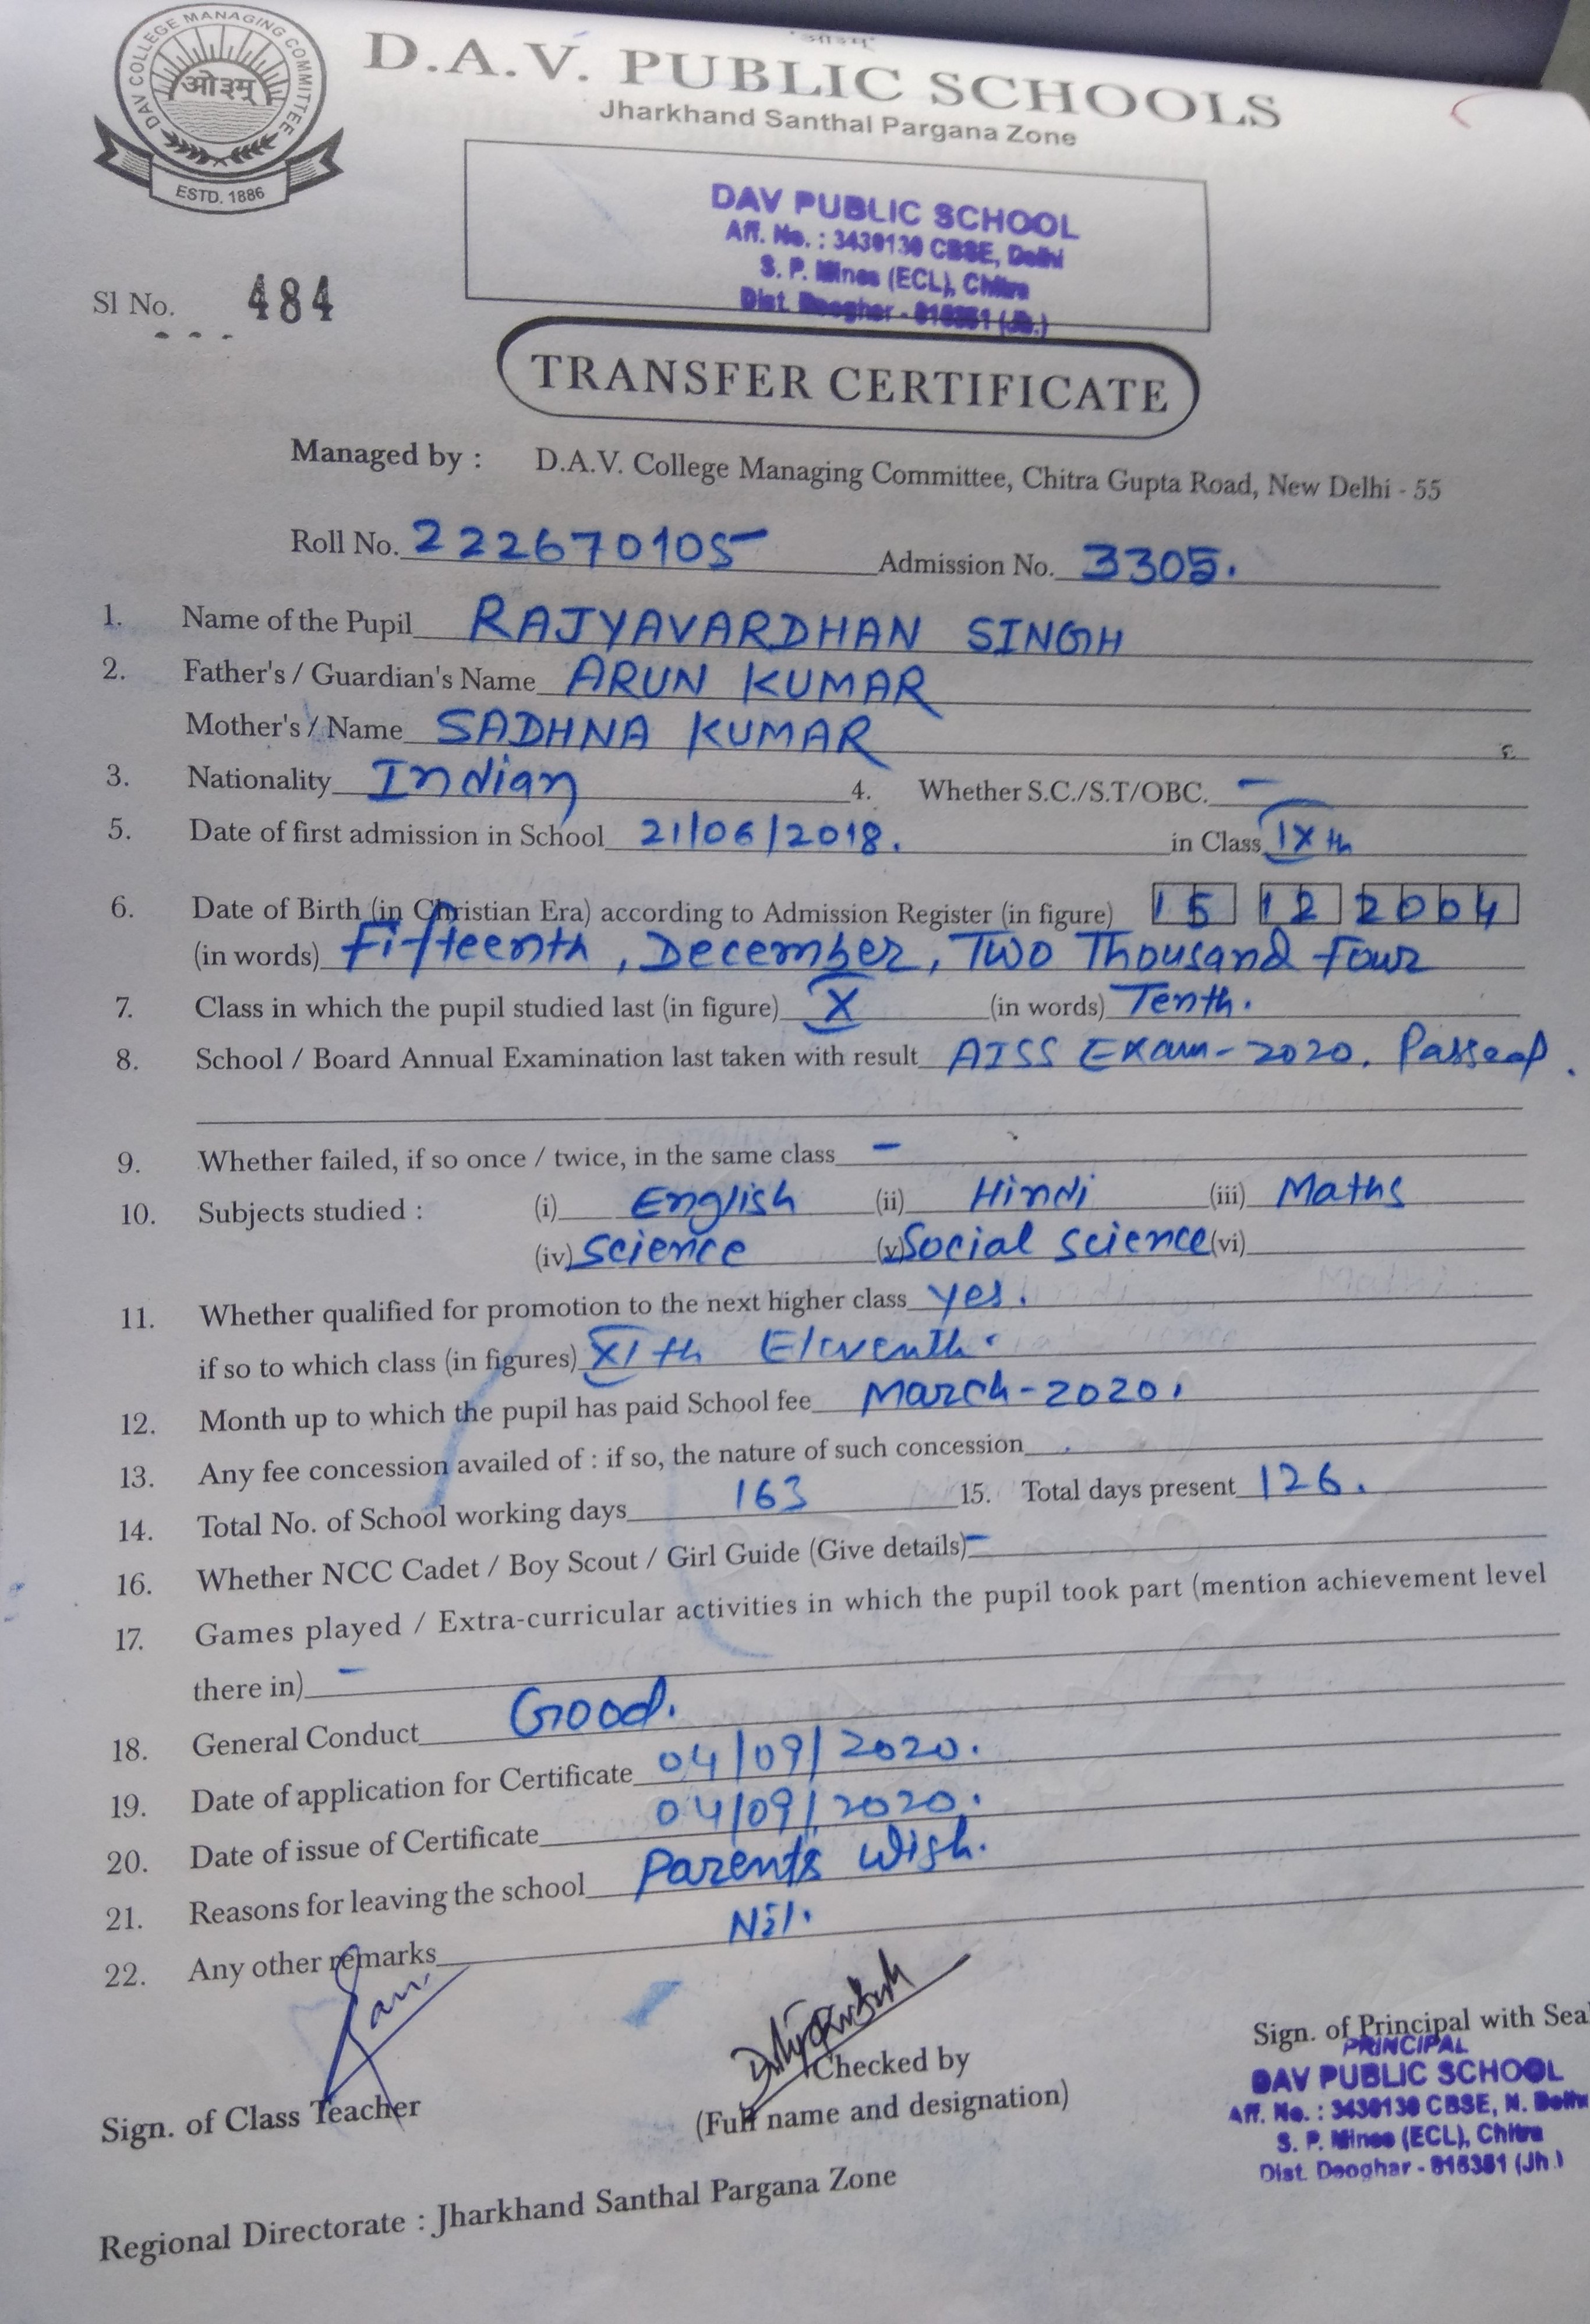 DAV COLLEGE MANAGING COMMITTEE
ओ३म्
ESTD. 1886
D.A.V. PUBLIC SCHOOLS
Jharkhand Santhal Pargana Zone
DAV PUBLIC SCHOOL
Aff. No. : 3430130 CBSE, Delhi
S. P. Mines (ECL), Chitra
Dist. Deoghar - 815351 (Jh.)
Sl No. 484
TRANSFER CERTIFICATE
Managed by : D.A.V. College Managing Committee, Chitra Gupta Road, New Delhi - 55
Roll No. 222670105 Admission No. 3305.
1. Name of the Pupil RAJYAVARDHAN SINGH
2. Father's / Guardian's Name ARUN KUMAR
Mother's / Name SADHNA KUMAR
3. Nationality Indian 4. Whether S.C./S.T/OBC. –
5. Date of first admission in School 21/06/2018. in Class IXth
6. Date of Birth (in Christian Era) according to Admission Register (in figure) 15 12 2004
(in words) Fifteenth, December, Two Thousand Four
7. Class in which the pupil studied last (in figure) X (in words) Tenth.
8. School / Board Annual Examination last taken with result AISS Exam-2020. Passed.
9. Whether failed, if so once / twice, in the same class –
10. Subjects studied : (i) English (ii) Hindi (iii) Maths
(iv) Science (v) Social science (vi)
11. Whether qualified for promotion to the next higher class yes.
if so to which class (in figures) XIth Eleventh.
12. Month up to which the pupil has paid School fee March-2020.
13. Any fee concession availed of : if so, the nature of such concession
14. Total No. of School working days 163 15. Total days present 126.
16. Whether NCC Cadet / Boy Scout / Girl Guide (Give details) –
17. Games played / Extra-curricular activities in which the pupil took part (mention achievement level
there in) –
18. General Conduct Good.
19. Date of application for Certificate 04/09/2020.
20. Date of issue of Certificate 04/09/2020.
21. Reasons for leaving the school Parents Wish.
22. Any other remarks Nil.
Sign. of Class Teacher
Checked by
(Full name and designation)
Sign. of Principal with Seal
PRINCIPAL
DAV PUBLIC SCHOOL
Aff. No. : 3430130 CBSE, N. Delhi
S. P. Mines (ECL), Chitra
Dist. Deoghar - 815351 (Jh.)
Regional Directorate : Jharkhand Santhal Pargana Zone